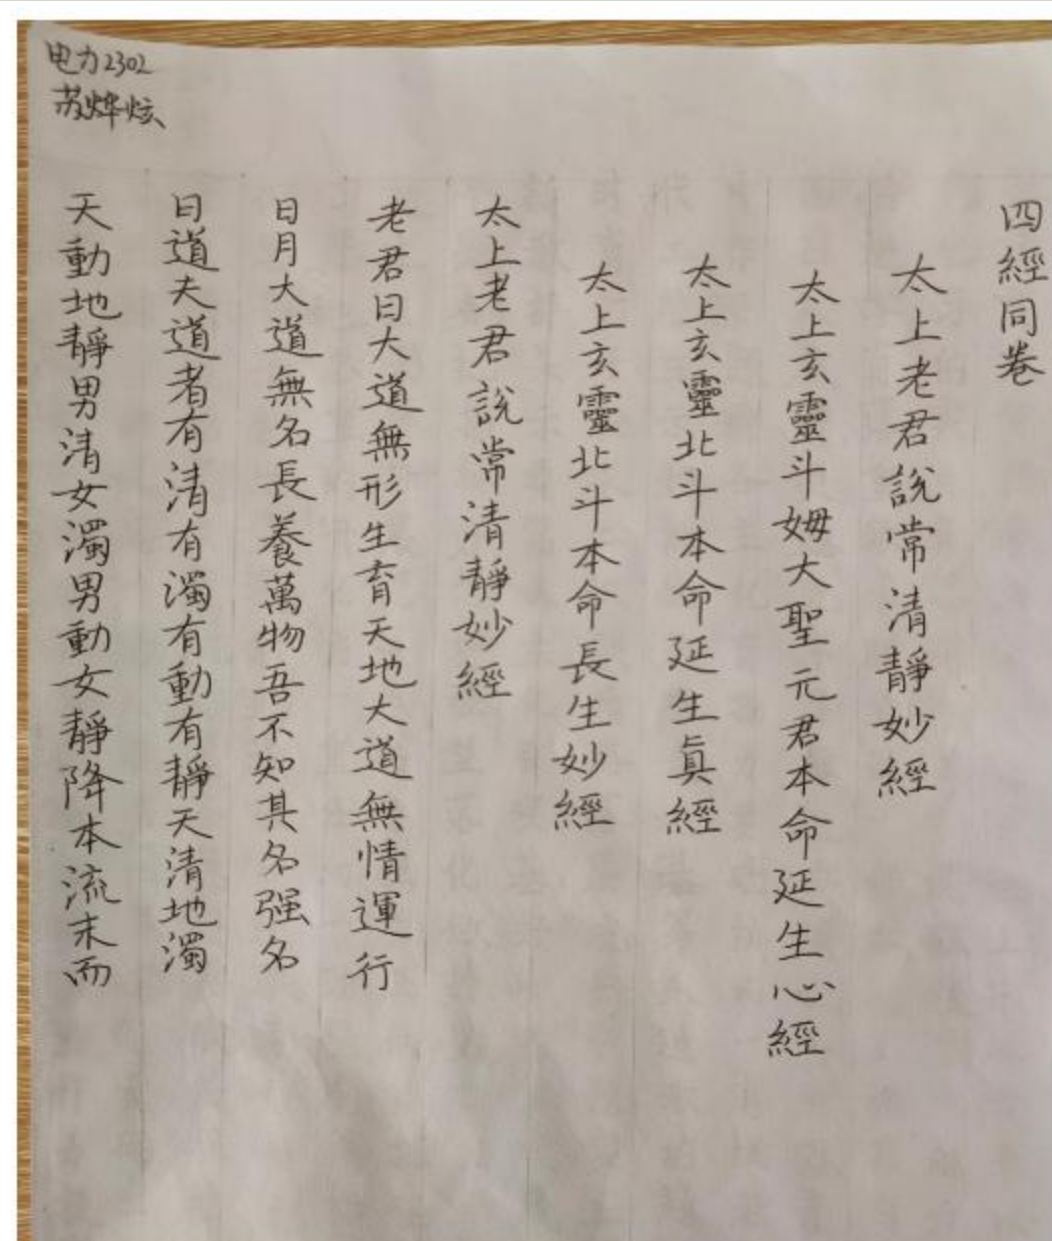 电力2302
苏烨炫
四經同卷
太上老君說常清靜妙經
太上玄靈斗姆大聖元君本命延生心經
太上玄靈北斗本命延生眞經
太上玄靈北斗本命長生妙經
太上老君說常清靜妙經
老君曰大道無形生育天地大道無情運行
日月大道無名長養萬物吾不知其名强名
曰道夫道者有清有濁有動有靜天清地濁
天動地靜男清女濁男動女靜降本流末而